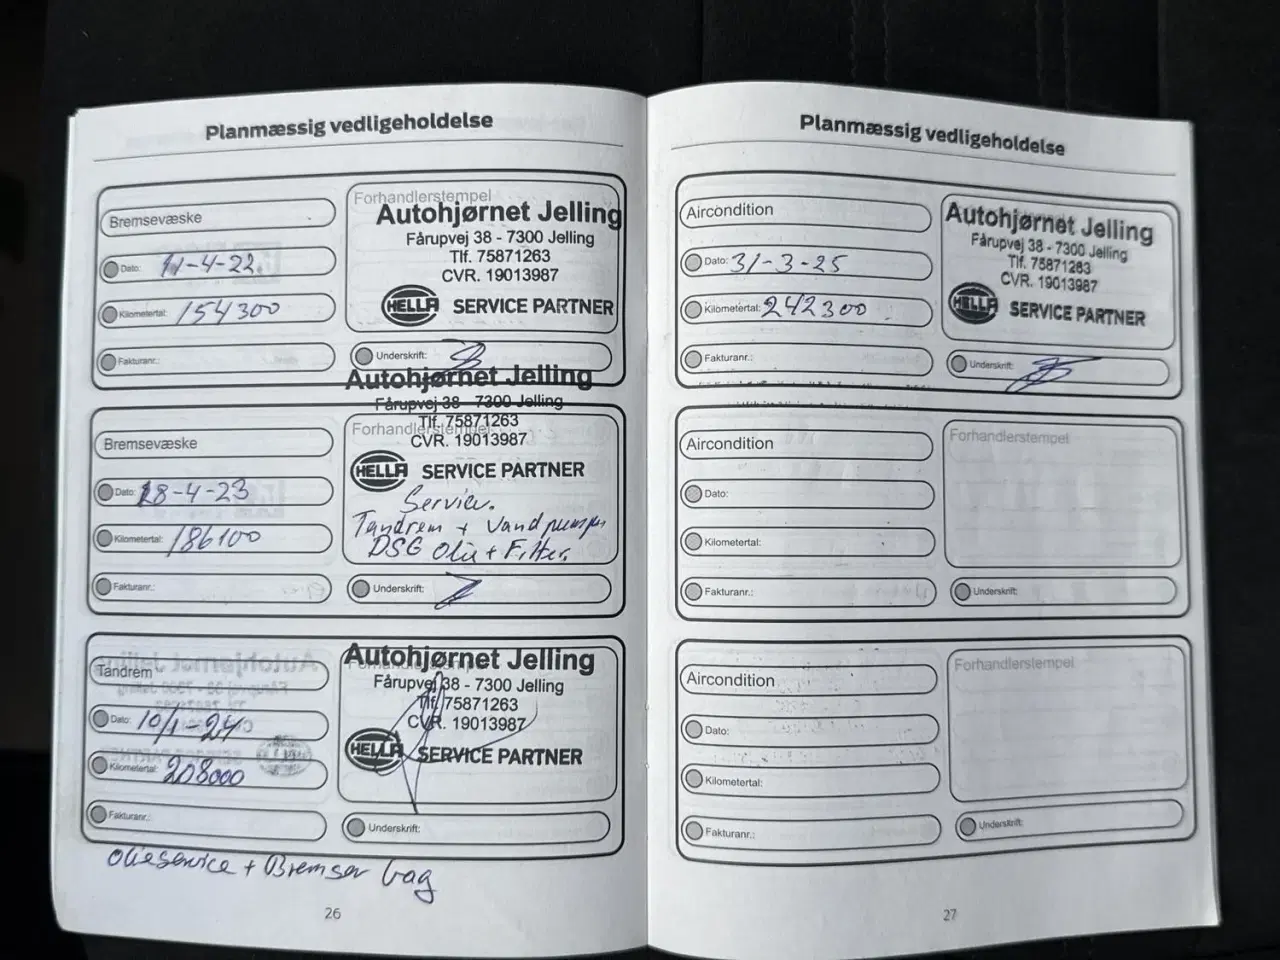 Planmæssig vedligeholdelse
Bremsevæske
Dato: 11-4-22
Kilometertal: 154300
Fakturanr.:
Forhandlerstempel
Autohjørnet Jelling
Fårupvej 38 - 7300 Jelling
Tlf. 75871263
CVR. 19013987
HELLA SERVICE PARTNER
Underskrift:
Bremsevæske
Dato: 18-4-23
Kilometertal: 186100
Fakturanr.:
Autohjørnet Jelling
Fårupvej 38 - 7300 Jelling
Tlf. 75871263
Forhandlerstempel
CVR. 19013987
HELLA SERVICE PARTNER
Service.
Tandrem + Vandpumpe
DSG Olie + Filter.
Underskrift:
Tandrem
Dato: 10/1-24
Kilometertal: 208000
Fakturanr.:
Autohjørnet Jelling
Fårupvej 38 - 7300 Jelling
Tlf. 75871263
CVR. 19013987
HELLA SERVICE PARTNER
Underskrift:
olieservice + Bremser bag
26
Planmæssig vedligeholdelse
Aircondition
Dato: 31-3-25
Kilometertal: 242300
Fakturanr.:
Autohjørnet Jelling
Fårupvej 38 - 7300 Jelling
Tlf. 75871263
CVR. 19013987
HELLA SERVICE PARTNER
Underskrift:
Aircondition
Dato:
Kilometertal:
Fakturanr.:
Forhandlerstempel
Underskrift:
Aircondition
Dato:
Kilometertal:
Fakturanr.:
Forhandlerstempel
Underskrift:
27